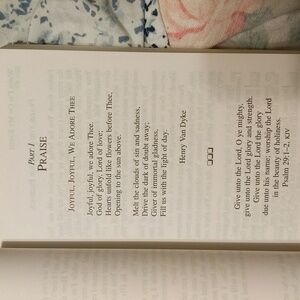 PART 1
PRAISE
JOYFUL, JOYFUL, WE ADORE THEE
Joyful, joyful, we adore Thee.
God of glory, Lord of love;
Hearts unfold like flowers before Thee,
Opening to the sun above.
Melt the clouds of sin and sadness,
Drive the dark of doubt away;
Giver of immortal gladness,
Fill us with the light of day.
Henry Van Dyke
Give unto the Lord, O ye mighty,
give unto the Lord glory and strength.
Give unto the Lord the glory
due unto his name; worship the Lord
in the beauty of holiness.
Psalm 29:1–2, KJV